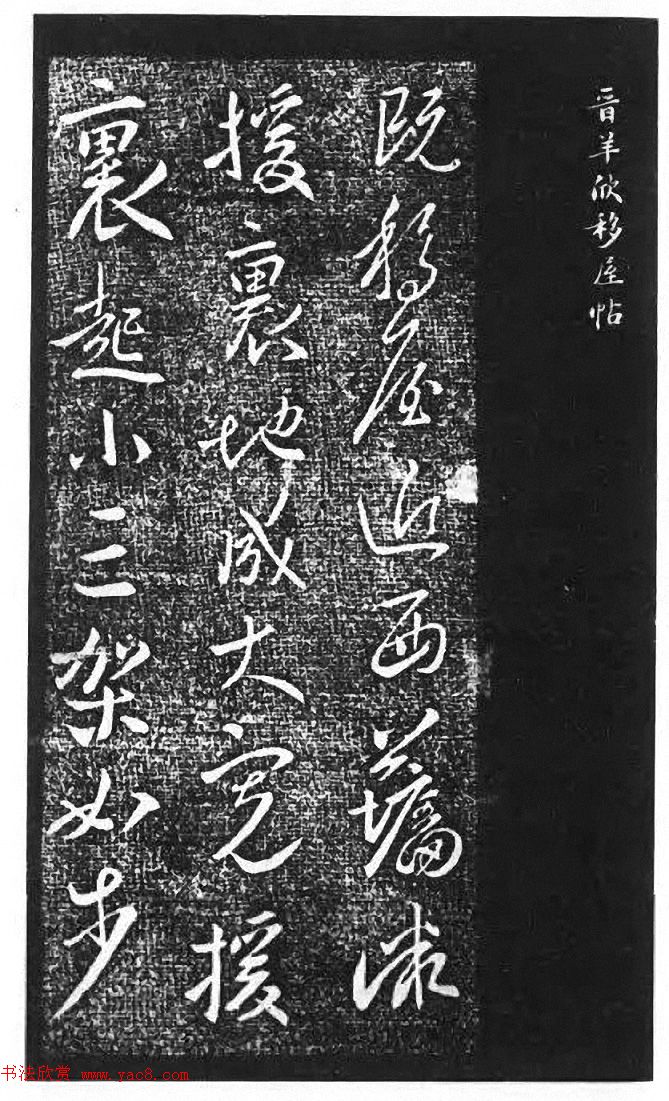 晋羊欣移屋帖
既移屋近西墻
援裏地成大寬援
裏起小三架如步
书法欣赏 www.yac8.com